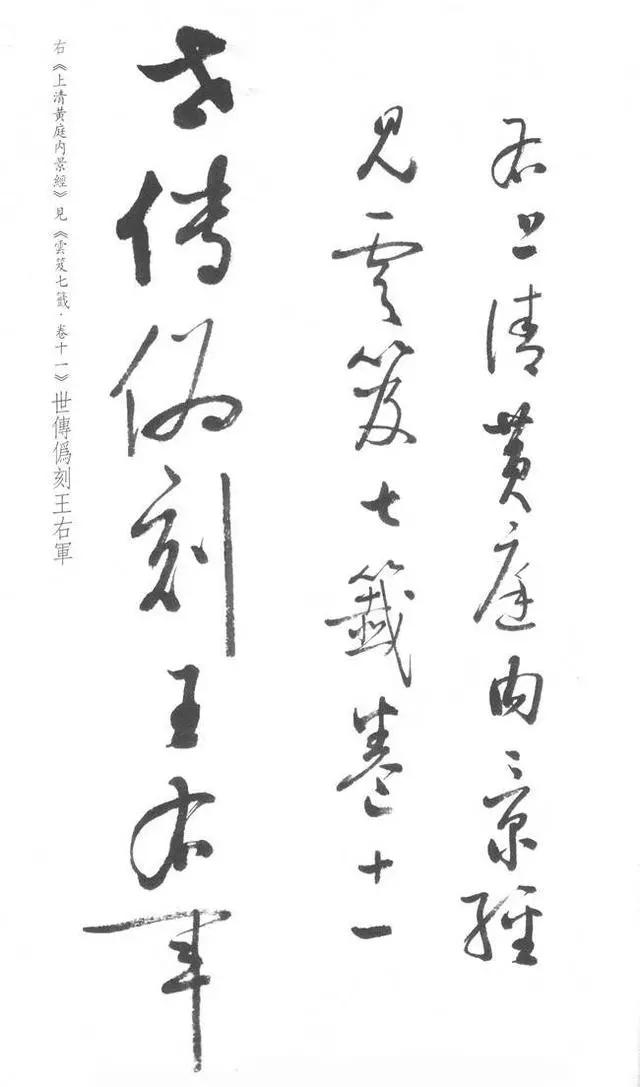 右上清黄庭内景經
見雲笈七籤卷十一
世傳偽刻王右軍
右《上清黃庭内景經》見《雲笈七籤·卷十一》世傳僞刻王右軍